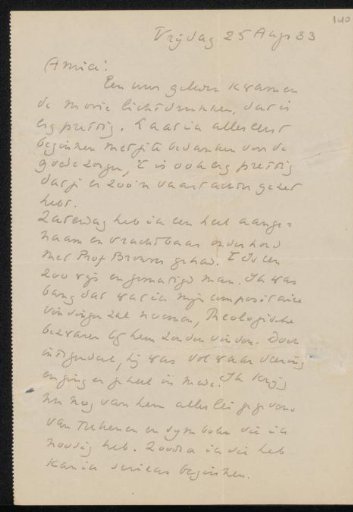 140
Vrijdag 25 Aug 33
Amice!
Een uur geleden kwamen
de mooie lichtdrukken, dat is
erg prettig. Laat ik allereerst
beginnen met je te bedanken voor de
goede zorgen, 't is ook erg prettig
dat je er zoo'n vaart achter gezet
hebt.
Zaterdag heb ik een heel aange-
naam en vruchtbaar onderhoud
met Prof Brouwer gehad. 't Is een
zoo wijs en gematigd man. Ik was
bang dat wat ik mijn
vindingen zal noemen, Theologische
bezwaren bij hem zouden vinden. Doch
integendeel, hij was vol waardeering
en ging er geheel in mede. Ik krijg
nu nog van hem allerlei gegevens
van teekenen en symbolen die ik
noodig heb. Zoodra ik die heb
kan ik serieus beginnen.